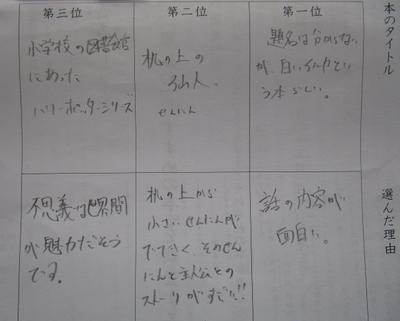 本のタイトル
選んだ理由
第一位
題名は分からない
が、白いイルカとい
う本らしい。
話の内容が
面白い。
第二位
机の上の
仙人。
せんにん
机の上から
小さいせんにんが
でてきて そのせん
にんと主人公との
ストーリがすごい!!
第三位
小学校の図書館
にあった
ハリーポッターシリーズ
不思議な世界間
が魅力だそう
です。